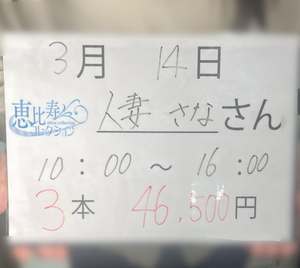 3月 14日
恵比寿
コレクション
人妻 さなさん
10:00～16:00
3本 46,500円